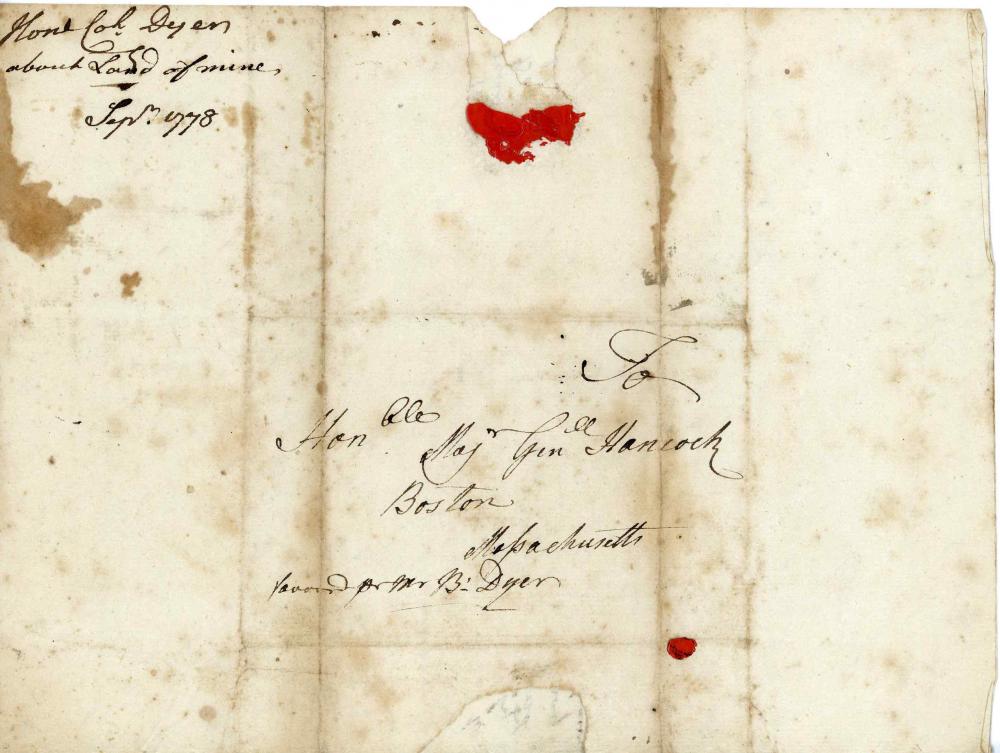 Hone Col. Dyer
about Land of mine
Sepr. 1778
To
Honble
Majr Genll Hancock
Boston
Massachusetts
favored pr Mr B: Dyer